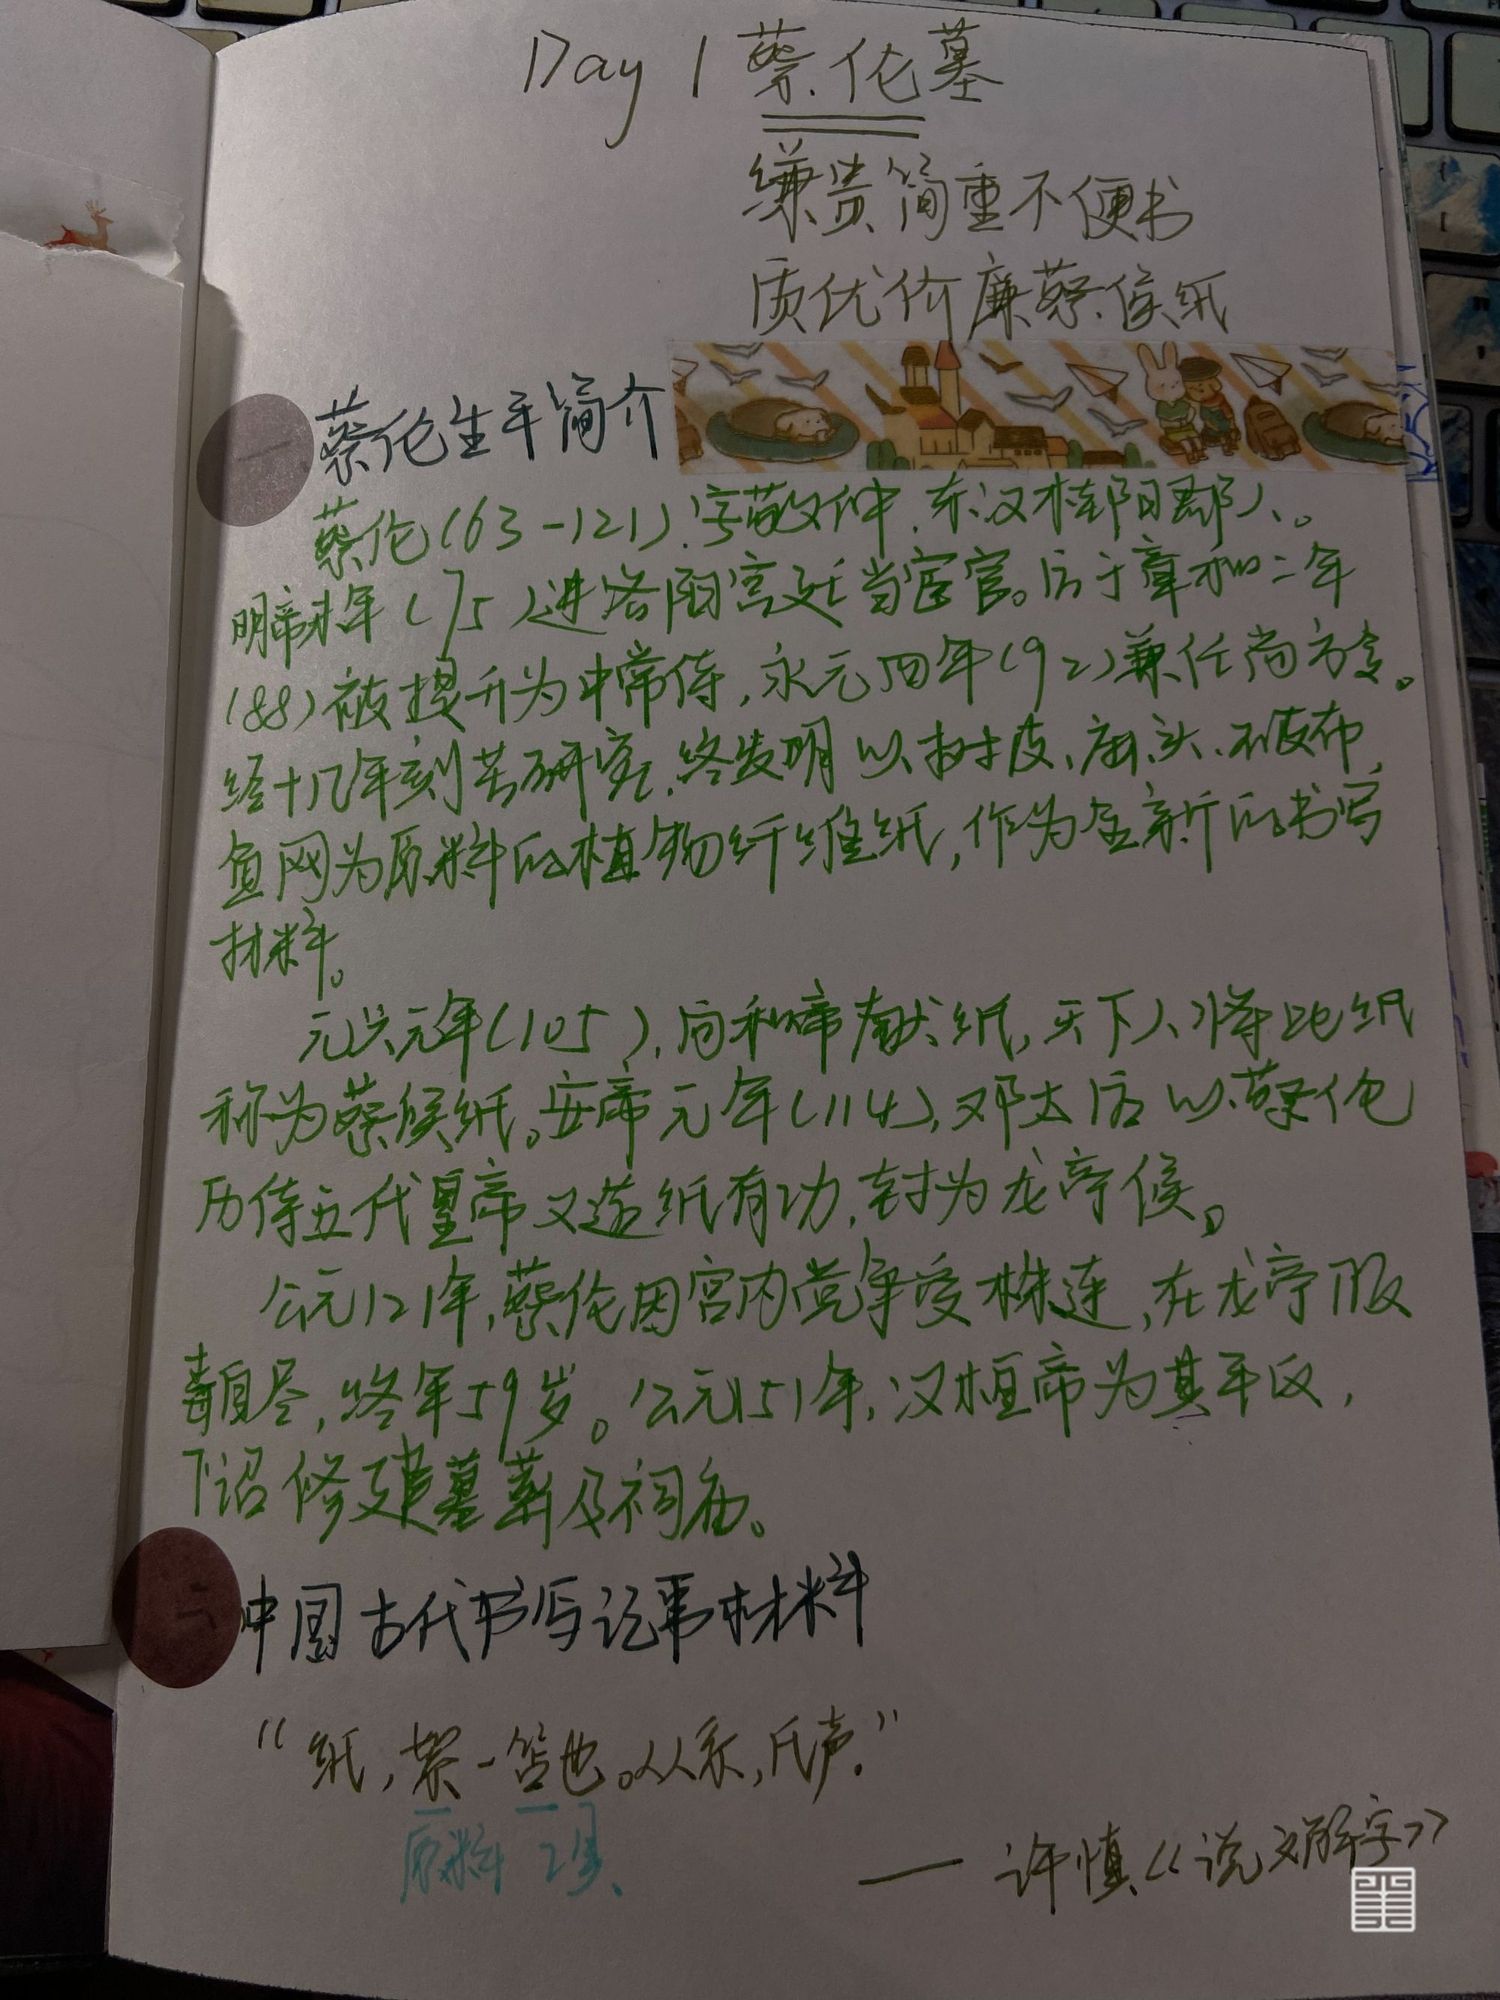 Day 1 蔡伦墓
缣贵简重不便书
质优价廉蔡侯纸
一 蔡伦生平简介
蔡伦(63-121),字敬仲,东汉桂阳郡人。
明帝末年(75)进洛阳宫廷当宦官。后于章和二年
(88)被提升为中常侍,永元四年(92)兼任尚方令。
经十几年刻苦研究,终发明以树皮、麻头、破布、
鱼网为原料的植物纤维纸,作为全新的书写
材料。
元兴元年(105),向和帝献纸,天下人将此纸
称为蔡侯纸。安帝元年(114),邓太后以蔡伦
历侍五代皇帝又造纸有功,封为龙亭侯。
公元121年,蔡伦因宫内党争受株连,在龙亭服
毒自尽,终年59岁。公元151年,汉桓帝为其平反,
下诏修建墓葬及祠庙。
二 中国古代书写记事材料
“纸,絮一笘也。从糸,氏声。”
原料 工具
——许慎《说文解字》